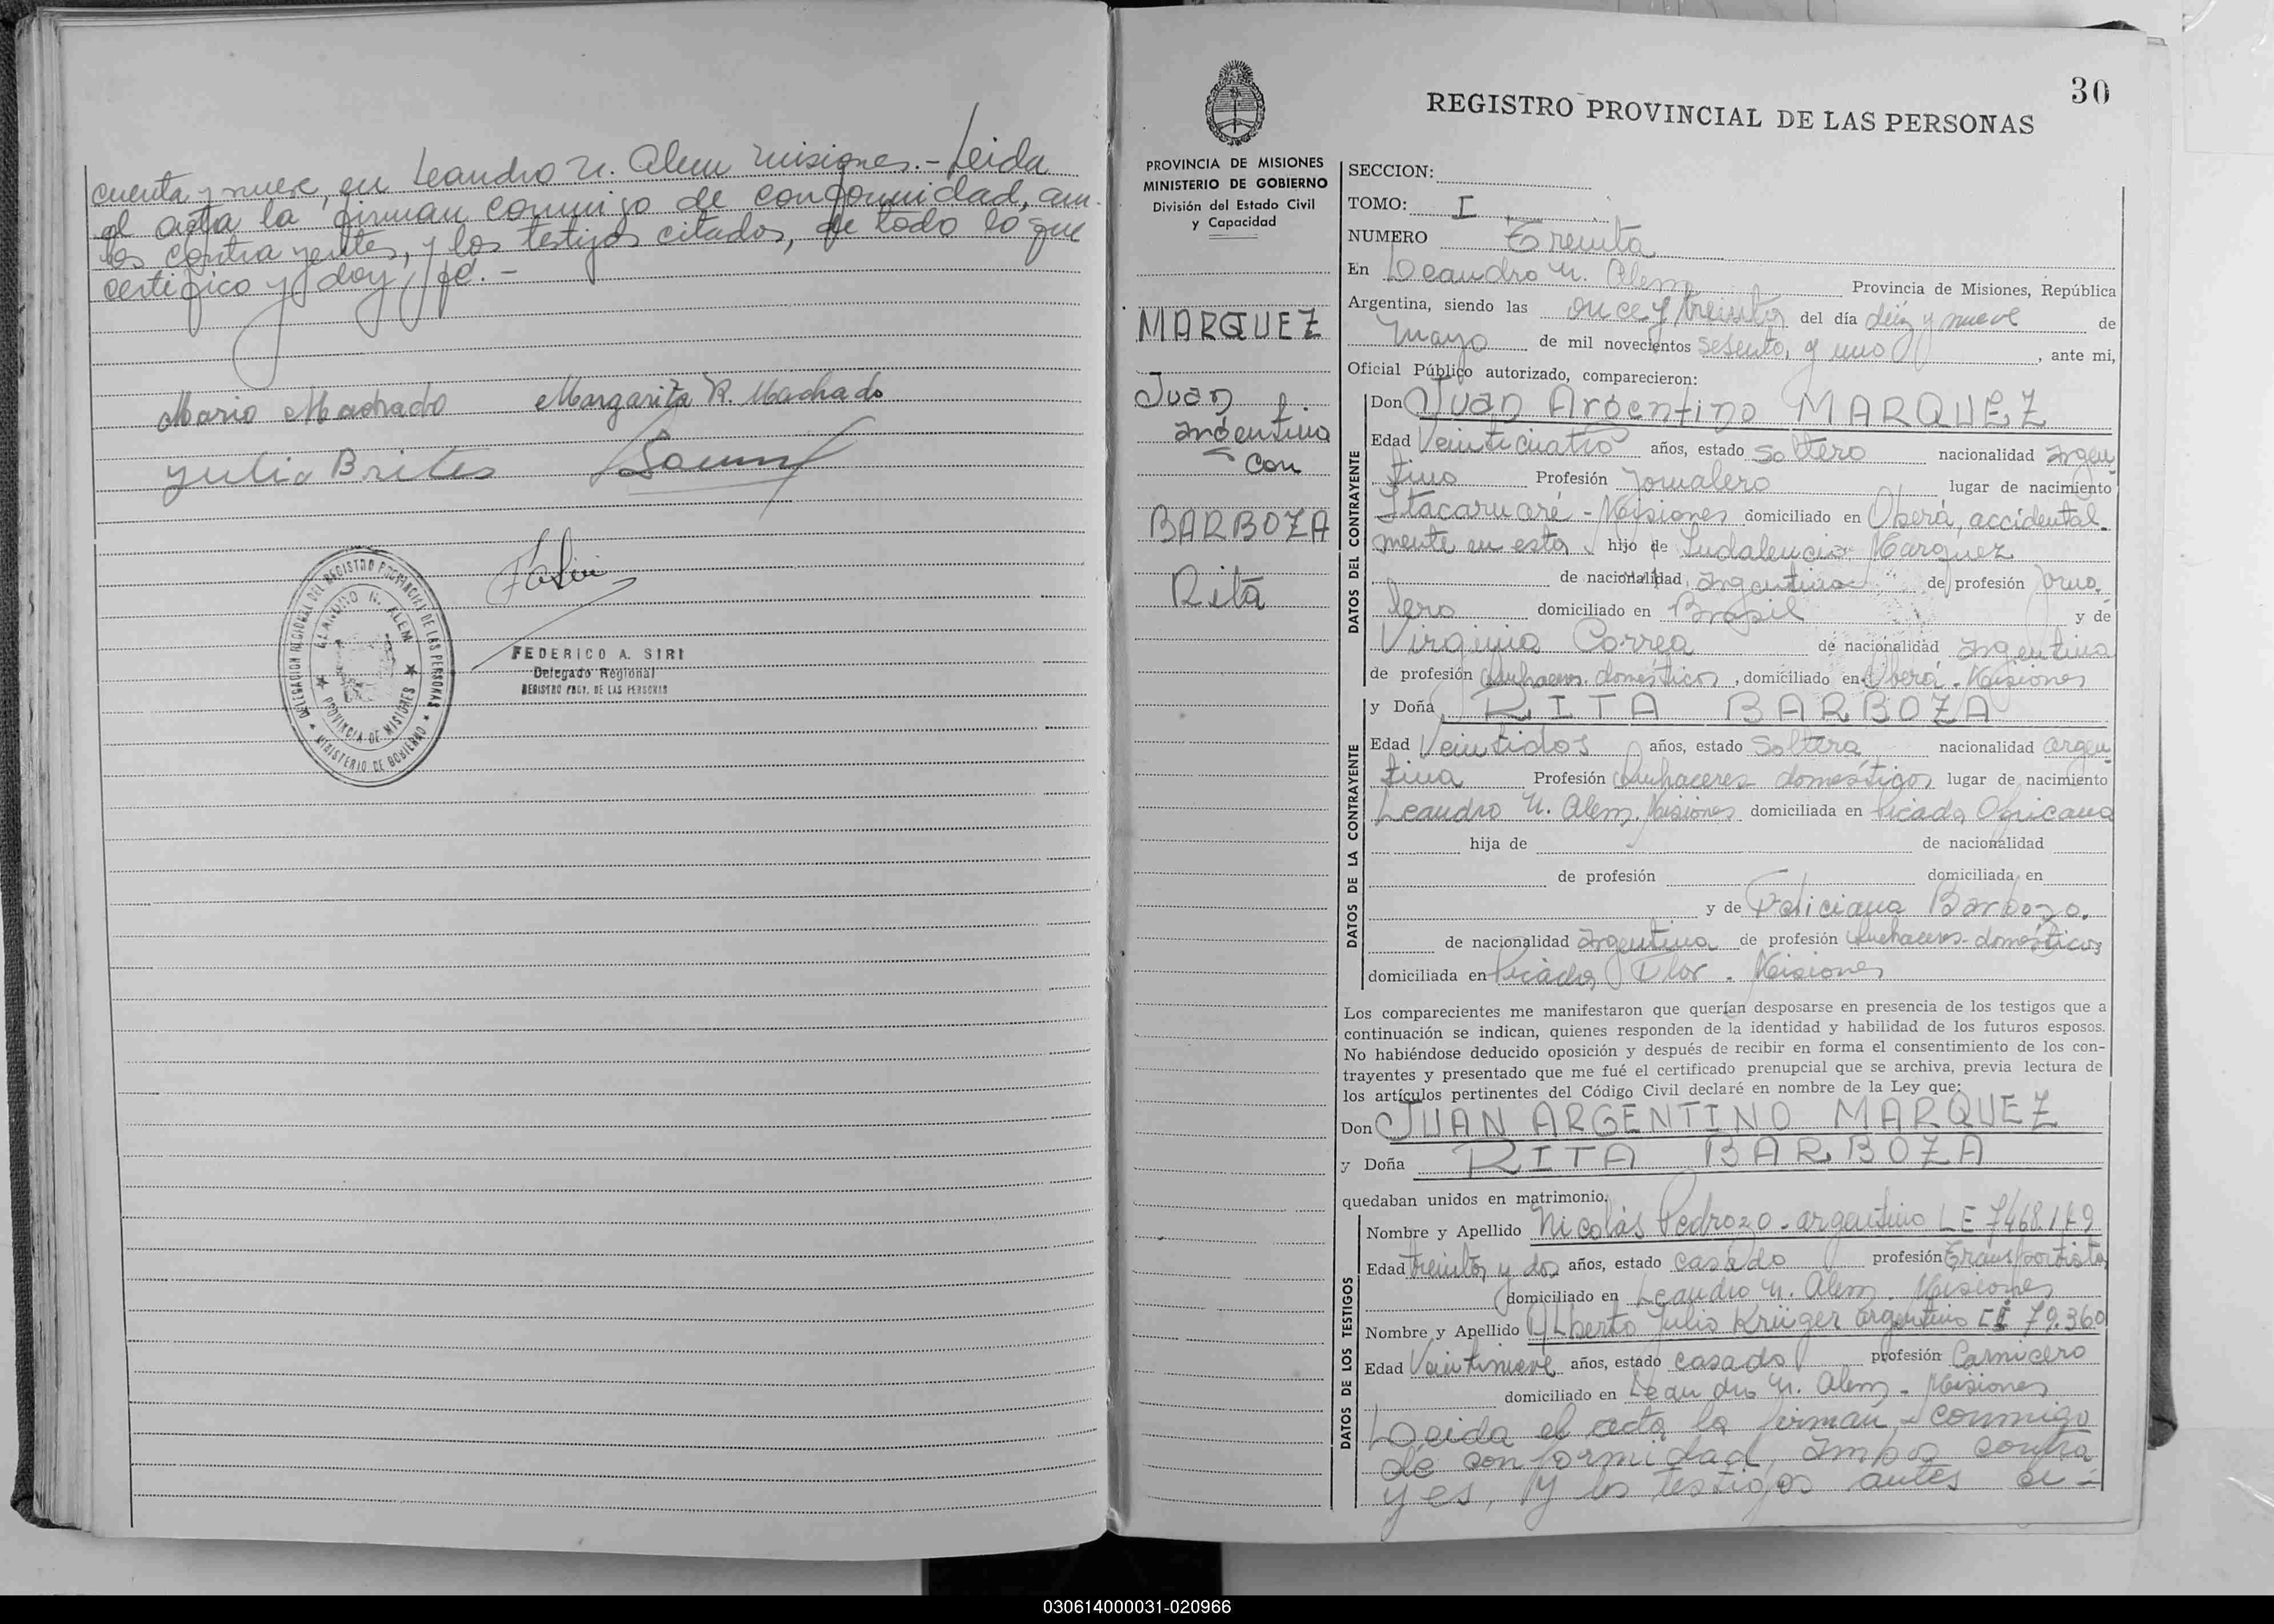 cuenta y nueve, en Leandro N. Alem Misiones.- Leida
el acta la firman conmigo de conformidad, am-
bos contrayentes, y los testigos citados, de todo lo que
certifico y doy fé.-
Mario Machado Margarita R. Machado
Julio Brites
DELEGACION REGIONAL DEL REGISTRO PROVINCIAL DE LAS PERSONAS
LEANDRO N. ALEM
PROVINCIA DE MISIONES
MINISTERIO DE GOBIERNO
FEDERICO A. SIRI
Delegado Regional
REGISTRO PROV. DE LAS PERSONAS
30
REGISTRO PROVINCIAL DE LAS PERSONAS
PROVINCIA DE MISIONES
MINISTERIO DE GOBIERNO
División del Estado Civil
y Capacidad
MARQUEZ
Juan
argentino
con
BARBOZA
Rita
SECCION:
TOMO: I
NUMERO Treinta
En Leandro N. Alem Provincia de Misiones, República
Argentina, siendo las once y treinta del día diez y nueve de
Mayo de mil novecientos sesenta y uno, ante mi,
Oficial Público autorizado, comparecieron:
DATOS DEL CONTRAYENTE
Don Juan Argentino MARQUEZ
Edad Veinticuatro años, estado Soltero nacionalidad argen-
tino Profesión Jornalero lugar de nacimiento
Itacaruaré - Misiones domiciliado en Oberá, accidental-
mente en esta hijo de Indalencio Marquez
de nacionalidad argentina de profesión Jorna-
lero domiciliado en Brasil y de
Virginia Correa de nacionalidad argentina
de profesión Quehaceres domésticos, domiciliado en Oberá - Misiones
DATOS DE LA CONTRAYENTE
y Doña RITA BARBOZA
Edad Veintidos años, estado Soltera nacionalidad argen-
tina Profesión Quehaceres domésticos lugar de nacimiento
Leandro N. Alem. Misiones domiciliada en Picada Africana
hija de de nacionalidad
de profesión domiciliada en
y de Feliciana Barboza.
de nacionalidad argentina de profesión Quehaceres domésticos
domiciliada en Picada Flor - Misiones
Los comparecientes me manifestaron que querían desposarse en presencia de los testigos que a
continuación se indican, quienes responden de la identidad y habilidad de los futuros esposos.
No habiéndose deducido oposición y después de recibir en forma el consentimiento de los con-
trayentes y presentado que me fué el certificado prenupcial que se archiva, previa lectura de
los artículos pertinentes del Código Civil declaré en nombre de la Ley que:
Don JUAN ARGENTINO MARQUEZ
y Doña RITA BARBOZA
quedaban unidos en matrimonio.
DATOS DE LOS TESTIGOS
Nombre y Apellido Nicolás Pedrozo - argentino LE 7468179
Edad treinta y dos años, estado casado profesión Transportista
domiciliado en Leandro N. Alem - Misiones
Nombre y Apellido Alberto Julio Krüger argentino CI 79.360
Edad Veintinueve años, estado casado profesión Carnicero
domiciliado en Leandro N. Alem - Misiones
Leida el acta la firman conmigo
de conformidad, ambos contra
yes, y los testigos antes ci-
030614000031-020966